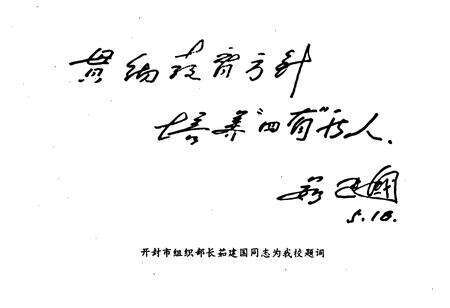 贯彻教育方针
培养“四有”新人.
茹建国
5.18.
开封市组织部长茹建国同志为我校题词